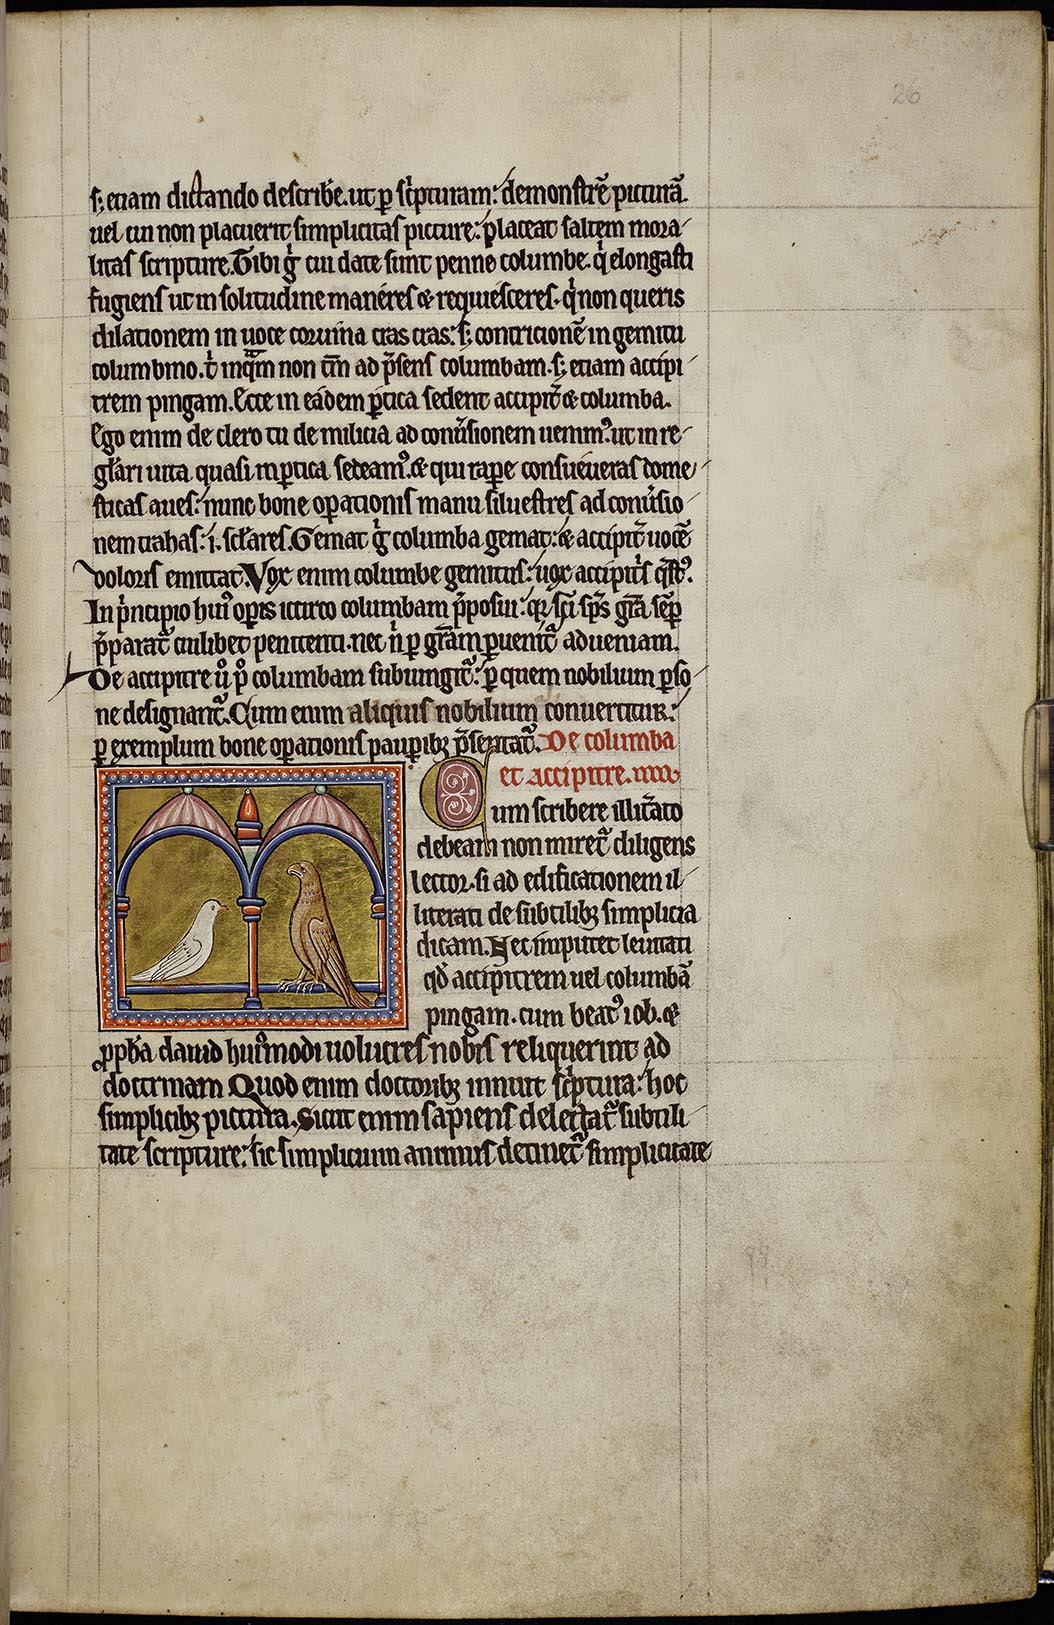 26
s; etiam dictando describe. ut p̱ sc̉pturam: demonstrē picturā.
uel cui non placuerit simplicitas picture: placeat saltem mora-
litas scripture. Tibi gͥ cui date sunt penne columbe. qͥ elongasti
fugiens ut in solitudine maneres & requiesceres. qͥ non queris
dilationem in uoce coruina cras cras: s; contricionē in gemitu
columbino. tͥ inquā non tm̄ ad p̄sens columbam. s; etiam accipi-
trem pingam. Ecce in eadem ꝑtica sedent accipit̉ & columba.
Ego enim de clero tu de milicia ad conủsionem uenimꝰ. ut in re-
gl̉ari uita quasi in ꝑtica sedeamꝰ. & qui rapere consueueras dome-
sticas aues: nunc bone oꝑationis manu siluestres ad conủsio-
nem trahas: .i. sc̉lares. Gemat gͥ columba gemat: & accipit̉ uocē
doloris emittat. Vox enim columbe gemitus: uox accipitͥs q̄stꝰ.
In pͥncipio huiꝰ oꝑis iccirco columbam p̄posui: qꝛ sc̄i sp̄s gr̄a seꝑ
p̄parat᷑ cuilibet penitenti. nec nͥ ꝑ gr̄am ꝑuenit᷑ ad ueniam.
De accipitre ů p̊ columbam subiungit᷑: ꝑ quem nobilium ꝑso-
ne designant᷑. Cum enim aliquis nobilium conuertitur:
ꝑ exemplum bone oꝑationis pauꝑibꝫ p̄sentat᷑. De columba
et accipitre.
Cum scribere illit̉ato
debeam non miret᷑ diligens
lector. si ad edificationem il-
literati de subtilibꝫ simplicia
dicam. Nec imputet leuitati
qd̄ accipitrem uel columbā
pingam. cum beatꝰ iob. &
ꝓph̄a dauid huiꝰmodi uolucres nobis reliquerint ad
doctrinam Quod enim doctoribꝫ innuit sc̉ptura: hoc
simplicibꝫ pictura. Sicut enim sapiens delectat᷑ subtili-
tate scripture: sic simplicium animus detinet᷑ simplicitate